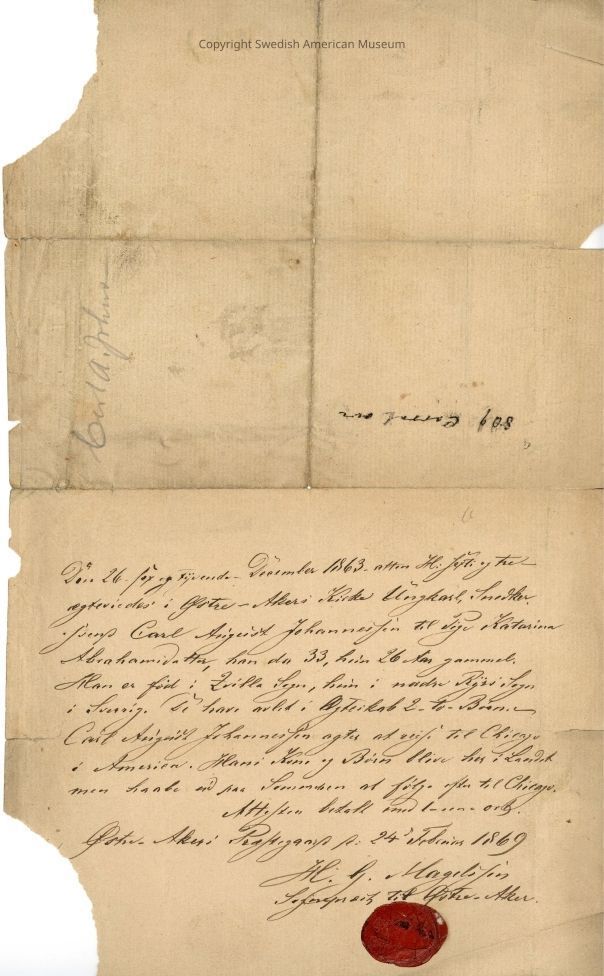 Copyright Swedish American Museum
Carl A. Johns
809
Den 26- sex og tyvende- December 1863- atten H: og tre-
ægteviedes i Østre-Akers Kirke Ungkarl, Snedker-
Carl August Johannessen til Pige Katarina
Abrahamsdatter, han da 33, hun 26 Aar gammel.
Han er föd i Sogn, hun i nadre Sogn
i Sverrig. De have avlet i Ægteskab 2- to- Börn.-
Carl August Johannessen agter at reise til Chicago
i America. Hans Kone og Börn blive her i Landet
men haabe ud paa Sommeren at følge efter til Chicago.
Attesten betalt med
Østre-Akers Præstegaard d: 24' Februar 1869
H. G. Magelssen
Sognepræst til Østre-Aker.